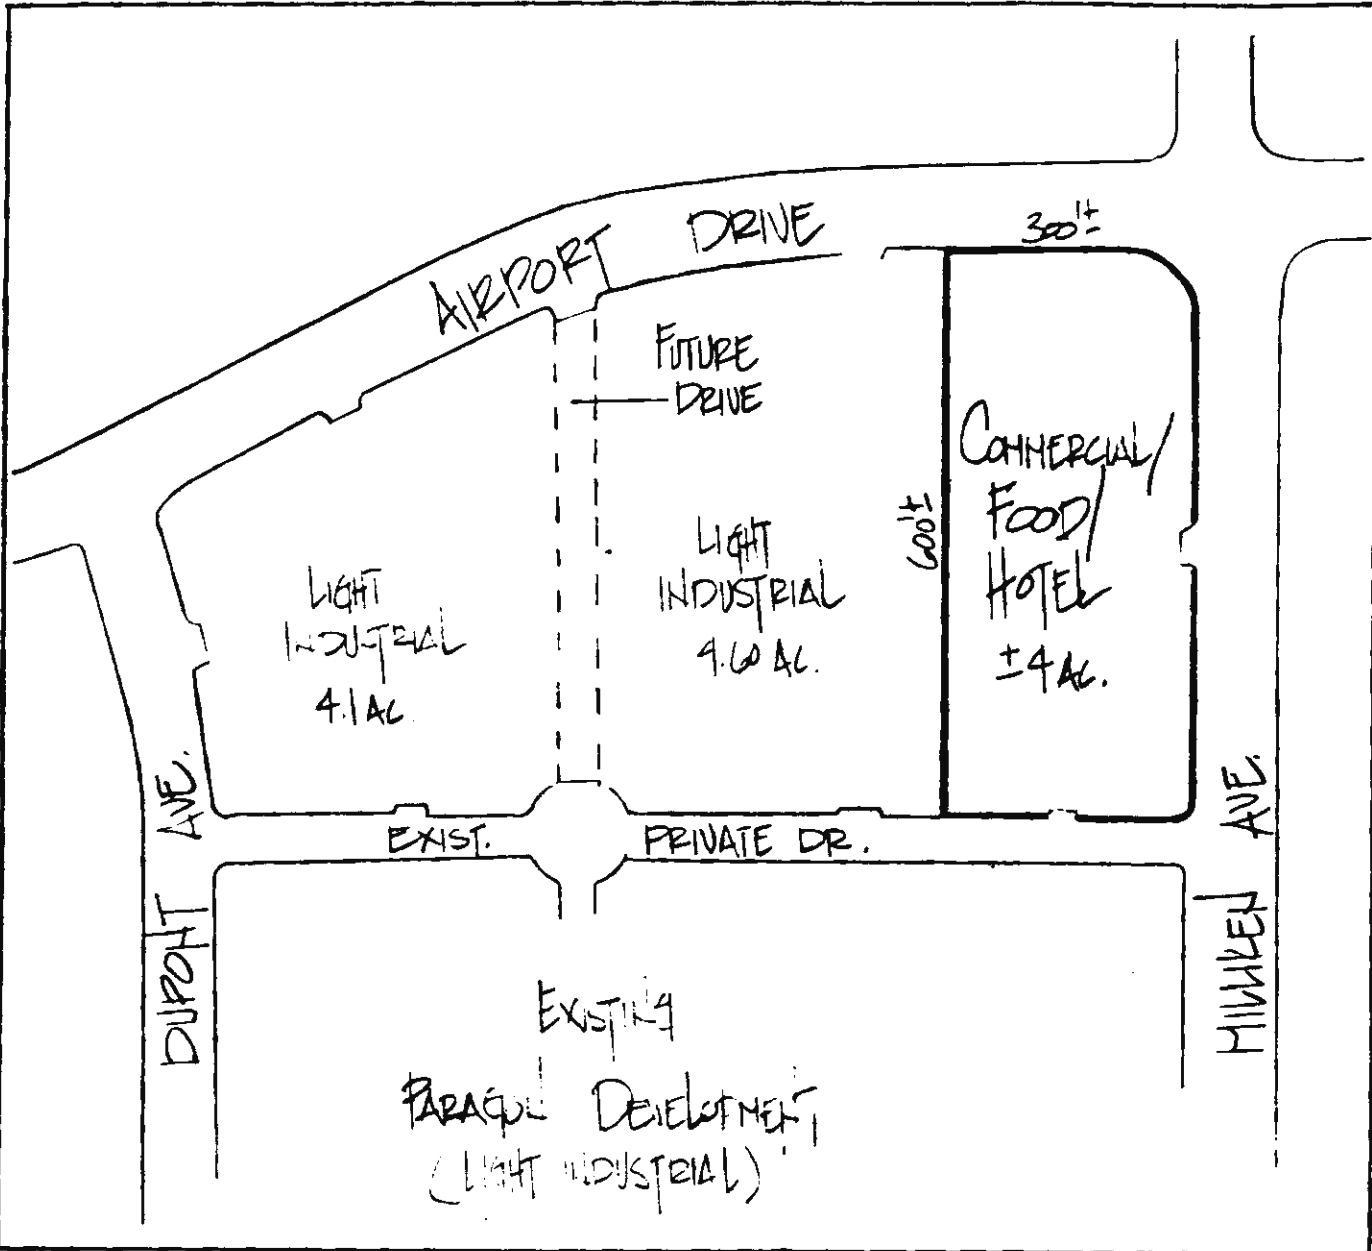 AIRPORT DRIVE
300'±
FUTURE
DRIVE
COMMERCIAL/
FOOD/
HOTEL
±4 AC.
600'±
LIGHT
INDUSTRIAL
4.60 AC.
LIGHT
INDUSTRIAL
4.1 AC
EXIST. PRIVATE DR.
DUPONT AVE.
MILLIKEN AVE.
EXISTING
PARAGON DEVELOPMENT
(LIGHT INDUSTRIAL)